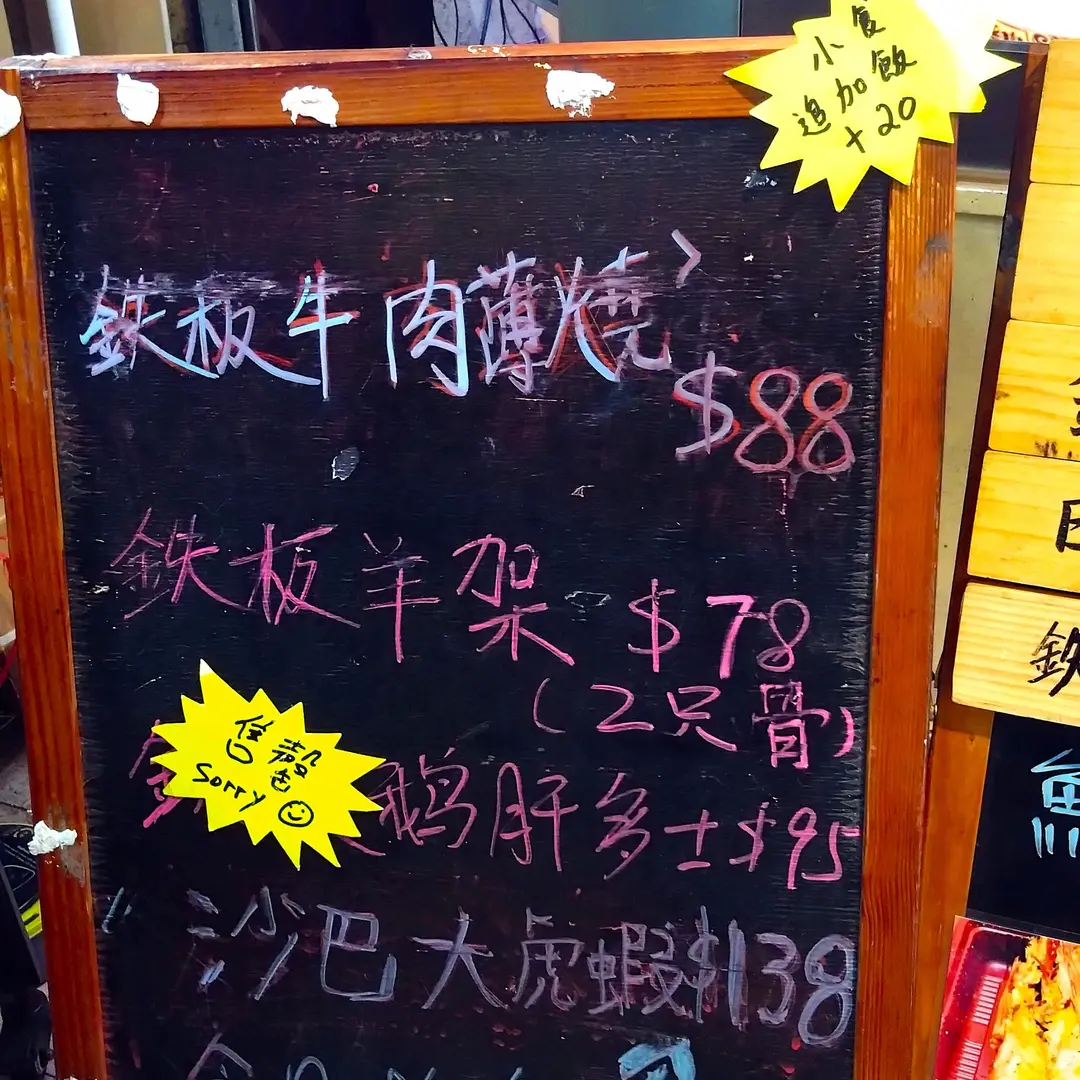 小食
追加飯
+20
鉄板牛肉薄燒
$88
鉄板羊架 $78
(2只骨)
售罄
sorry
鵝肝多士 $95
沙巴大虎蝦 $138